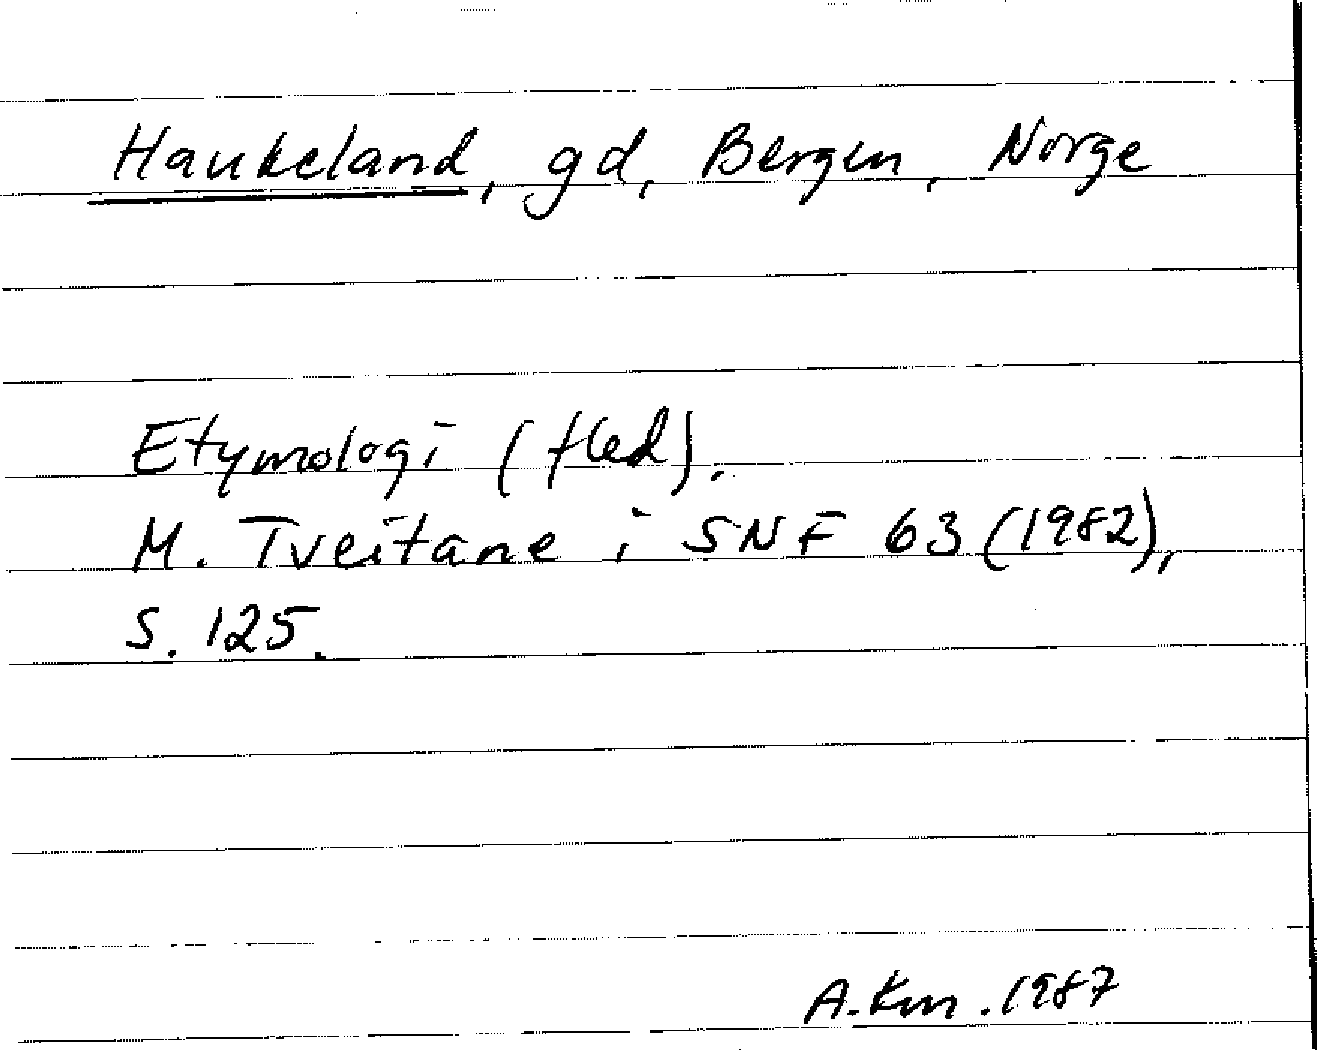 Haukeland, gd, Bergen, Norge
Etymologi (fled).
M. Tveitane i SNF 63 (1982),
S. 125.
A. Km. 1987